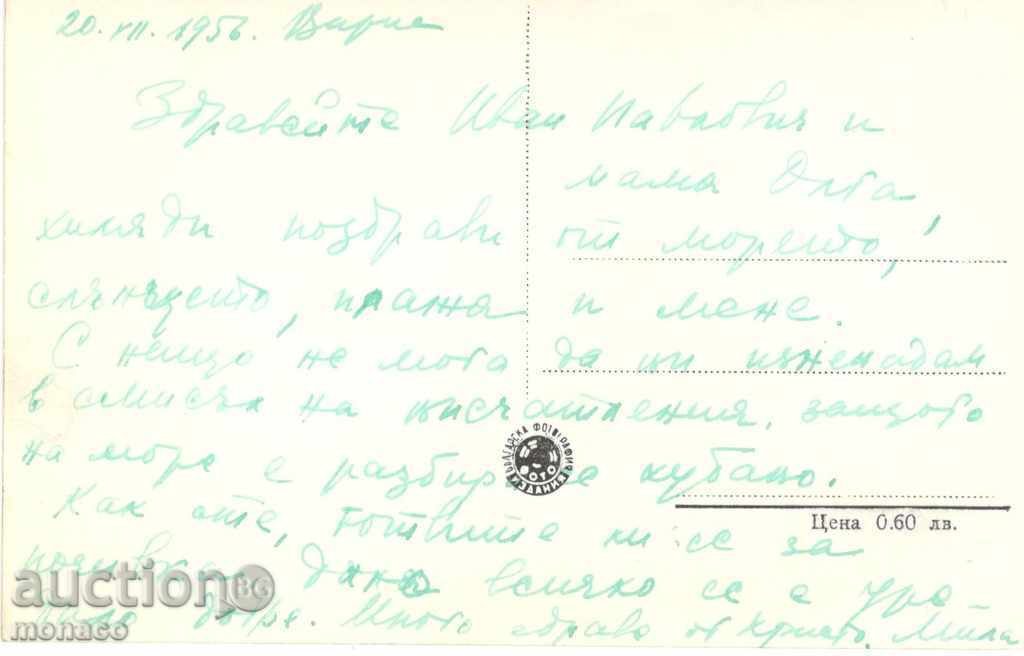 20. VII. 1956. Варна
Здравейте Иван Павлович и
мама Олга,
хиляди поздрави от морето,
слънцето, плажа и мене.
С нещо не мога да ви изненадам
в смисъл на впечатления, защото
на море е разбира се хубаво.
Как сте, готвите ли се за
почивка, дано всичко се е уре
дило добре. Много здраве от Христо. Мила
БЪЛГАРСКА ФОТОГРАФИЯ
ФОТО
ИЗДАНИЯ
Цена 0.60 лв.
auction BG
monaco